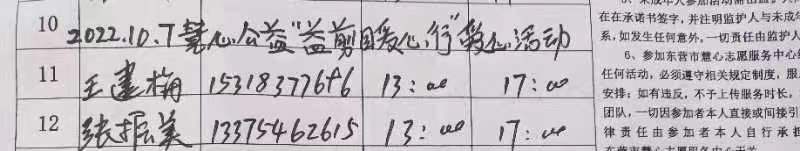 10 2022.10.7慧心公益"益剪圆爱心行"爱心活动
11 王建梅 15318377646 13:00 17:00
12 张振美 13375462615 13:00 17:00
在在承诺书签字,并注明监护人与未成
系,如发生任何意外,一切责任由监护人
6、参加东营市慧心志愿服务中心
任何活动,必须遵守相关规定制度,服
安排;如有违反,不予上传服务时长,
团队,一切因参加者本人直接或间接引
律责任由参加者本人自行承担